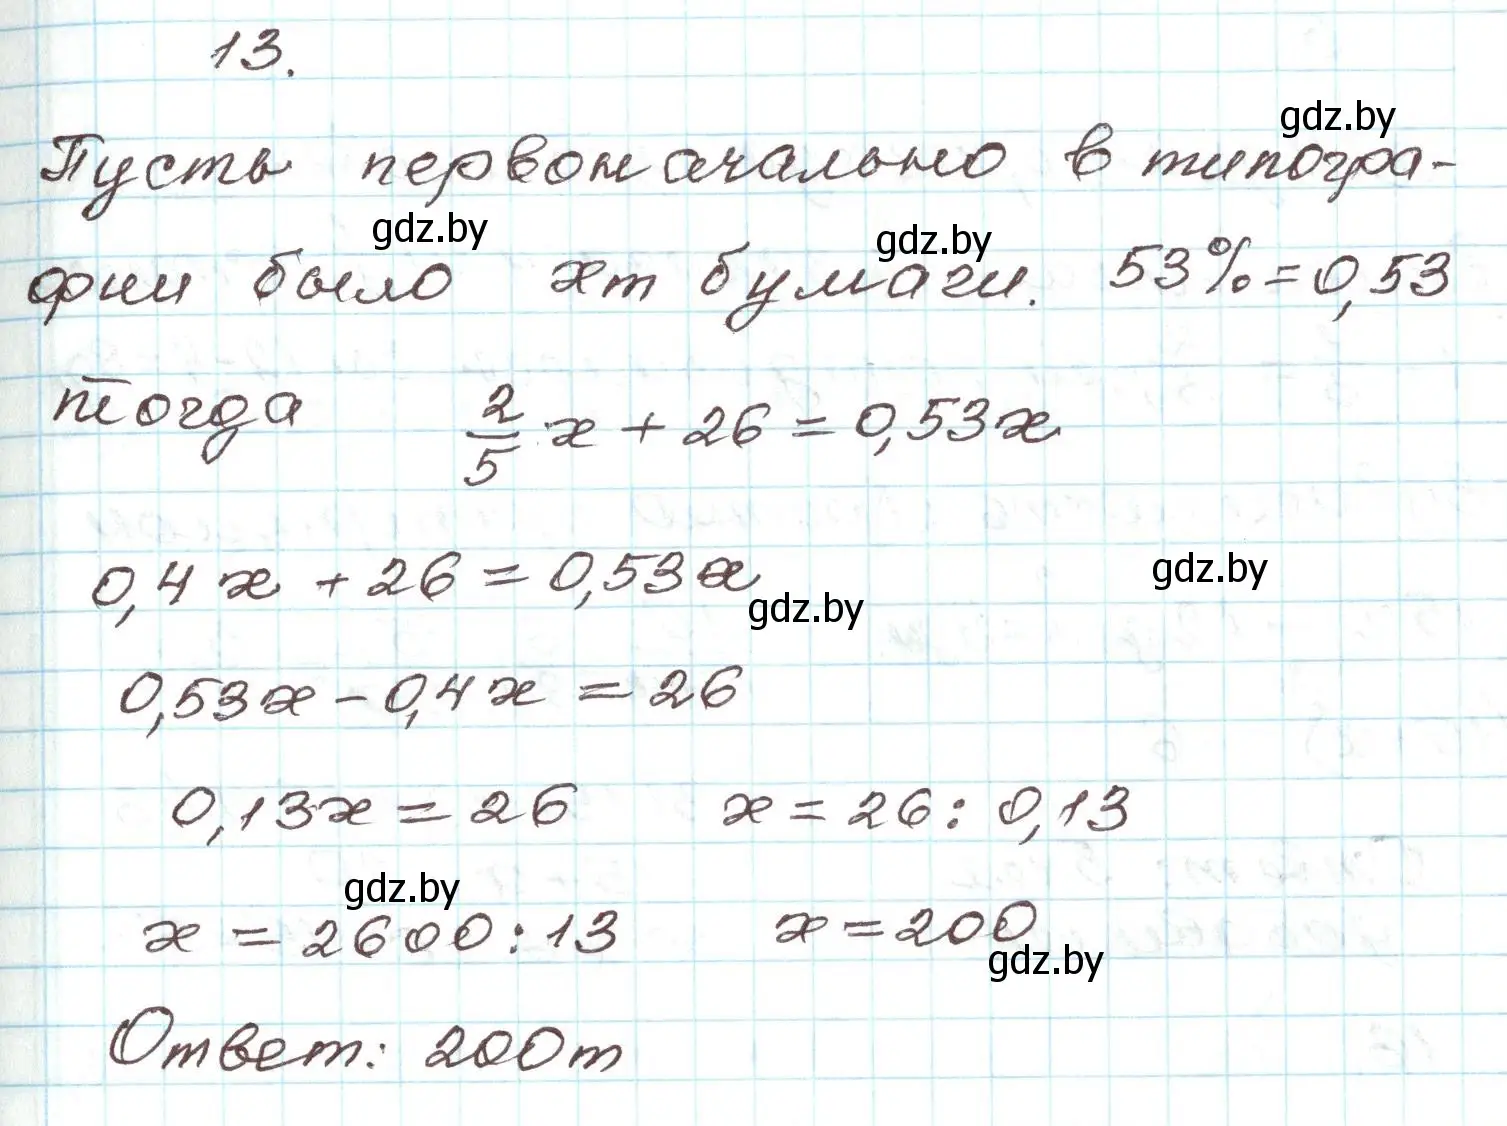 13.
gdz.by
Пусть первоначально в типогра-
gdz.by gdz.by
фии было xт бумаги. 53% = 0,53
тогда 2/5 x + 26 = 0,53x
0,4x + 26 = 0,53x gdz.by
gdz.by
0,53x - 0,4x = 26
0,13x = 26 x = 26 : 0,13
gdz.by
x = 2600 : 13 x = 200
gdz.by
Ответ: 200т